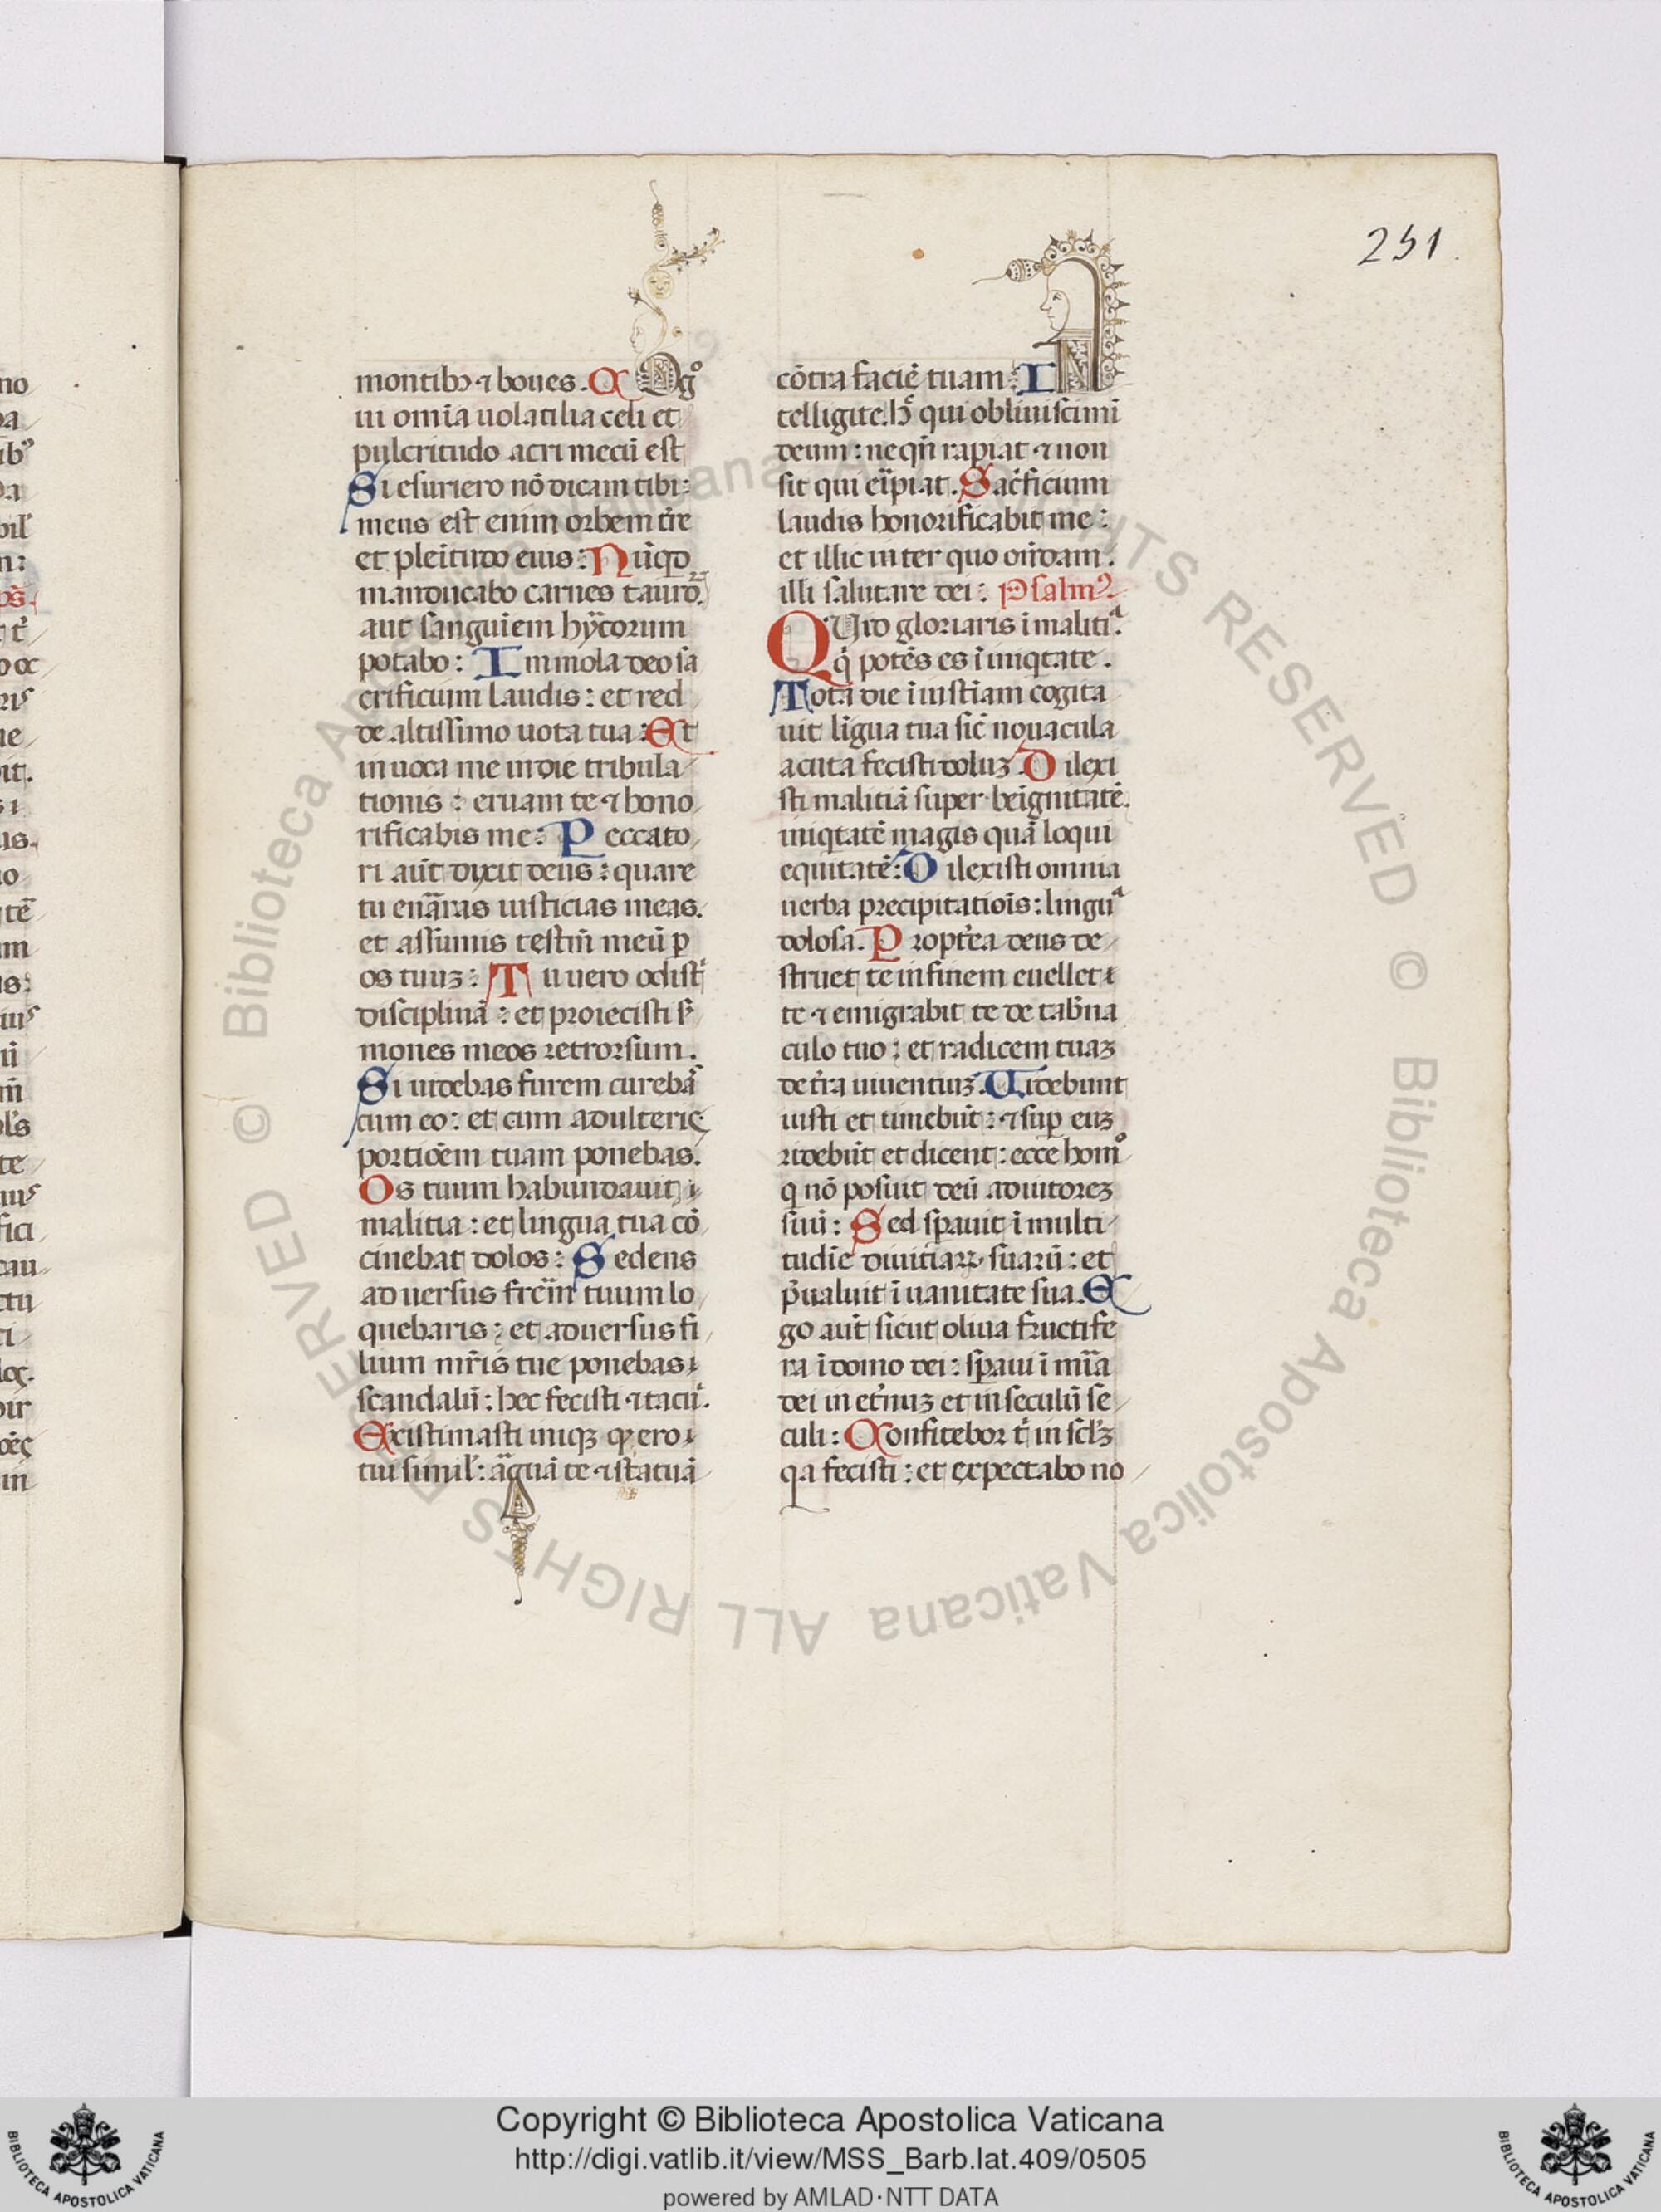 251
montibꝫ ⁊ boues. Cogͦ
ui om̄ia uolatilia celi et
pulcritudo acri mecū est
Si esuriero nō dicam tibi:
meus est enim orbem tr̄e
et plenitudo eius: Nūqd
manducabo carnes tauroꝝ
aut sanguiem hyrcorum
potabo: Immola deo sa
crificium laudis: et red
de altissimo uota tua: Et
inuoca me in die tribula
tionis: eruam te ⁊ hono
rificabis me: Peccato
ri aūt dixit deus: quare
tu enarras iusticias meas.
et assumis testm̄ meū ꝑ
os tuuꝫ: Tu uero odisti
disciplinā: et proiecisti s̄
mones meos retrorsum.
Si uidebas furem cureba
cum eo: et cum adulteris
portiōem tuam ponebas.
Os tuum habundauit
malitia: et lingua tua cō
cinebat dolos: Sedens
aduersus frēm tuum lo
quebaris: et aduersus fi
lium mr̄is tue ponebas
scandalū: hec fecisti ⁊ tacui.
Existimasti iniqꝫ ꝙ ero
tui simil': arguā te ⁊ statuā
cōtra faciē tuam: IN
telligite hͨ qui obliuiscimi
deum: neqn̄ rapiat ⁊ non
sit qui eripiat. Sacficium
laudis honorificabit me:
et illic inter quo on̄dam
illi salutare dei: Psalmꝰ
QUid gloriaris ī malitiᵃ
q̇ potēs es ī iniqtate.
Tota die ī iustiam cogita
uit līgua tua sic̄ nouacula
acuta fecisti doluꝫ Dilexi
sti malitiā super benīgnitatē.
iniqtatē magis quā loqui
equitatē: Dilexisti omnia
uerba precipitatiōis: linguᵃ
dolosa. Propt̄ea deus de
struet te in finem euellet
te ⁊ emigrabit te de tab̄na
culo tuo: et radicem tuaꝫ
de tr̄a uiuentiuꝫ. Uidebunt
iusti et timebūt: ⁊ suꝑ euꝫ
ridebūt et dicent: ecce homͦ
q nō posuit deū adiutoreꝫ
suū: Sed sꝑauit ī multi
tudīe diuitiaꝝ suarū: et
p̄ualuit ī uanitate sua. E
go aūt sicut oliua fructife
ra ī domo dei: sꝑaui ī mīa
dei in et̄nuꝫ et in seculū se
culi: Confitebor t̄ in scl'ꝫ
qa fecisti: et expectabo no
Copyright © Biblioteca Apostolica Vaticana
http://digi.vatlib.it/view/MSS_Barb.lat.409/0505
powered by AMLAD·NTT DATA
BIBLIOTECA APOSTOLICA VATICANA
BIBLIOTECA APOSTOLICA VATICANA
© Biblioteca Apostolica Vaticana ALL RIGHTS RESERVED © Biblioteca Apostolica Vaticana ALL RIGHTS RESERVED